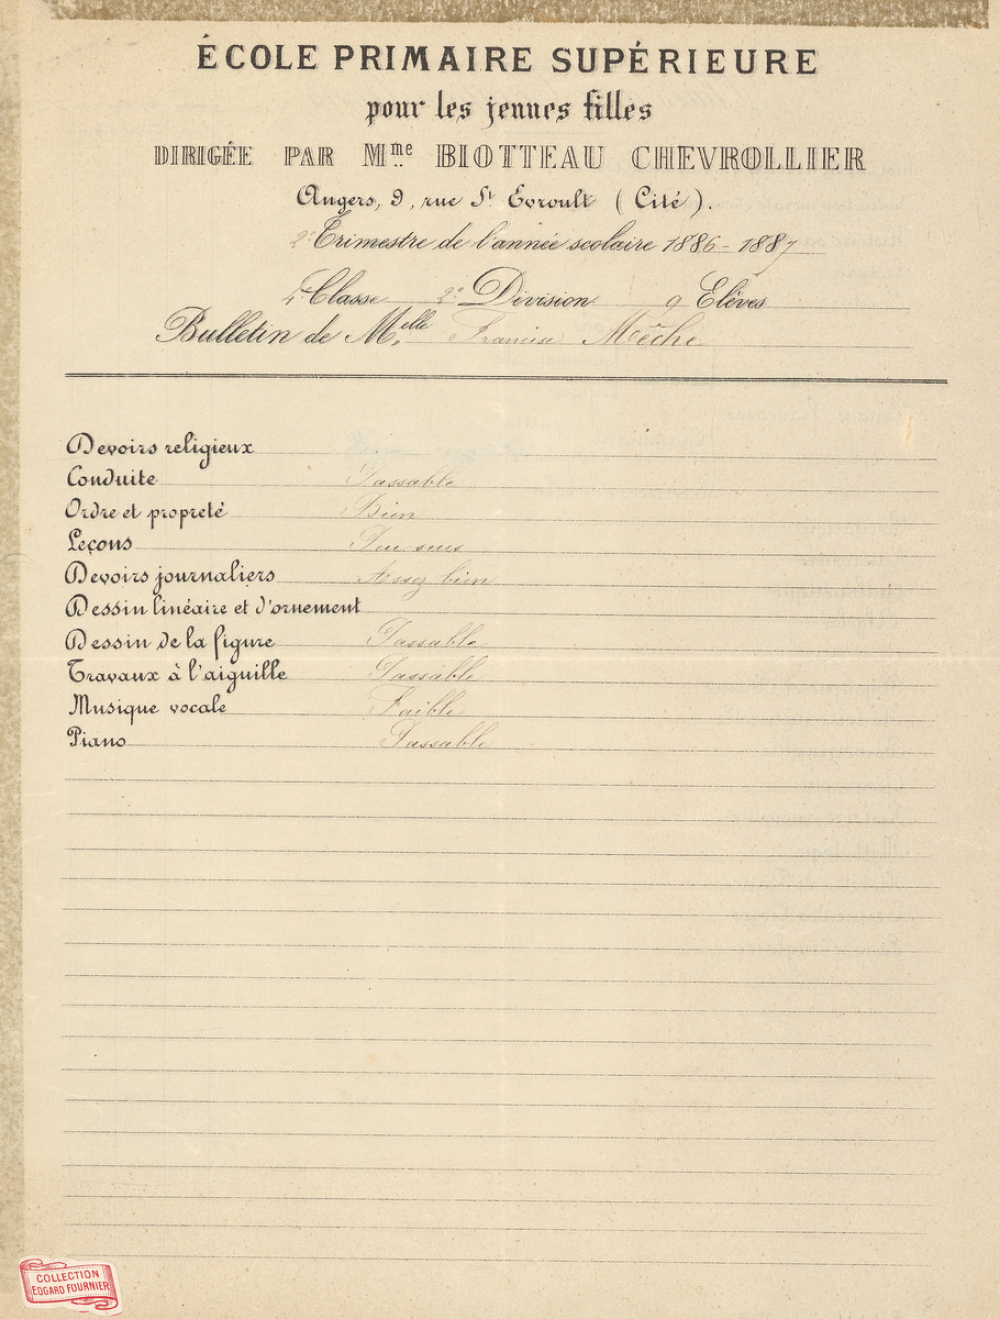 ÉCOLE PRIMAIRE SUPÉRIEURE
pour les jeunes filles
DIRIGÉE PAR Mme BIOTTEAU CHEVROLLIER
Angers, 9, rue St Evroult (Cité).
2e Trimestre de l'année scolaire 1886-1887
4e Classe 2e Division 9 Elèves
Bulletin de Melle Francise Mêche
Devoirs religieux
Conduite Passable
Ordre et propreté Bien
Leçons Peu sues
Devoirs journaliers Assez bien
Dessin linéaire et d'ornement
Dessin de la figure Passable
Travaux à l'aiguille Passable
Musique vocale Faible
Piano Passable
COLLECTION
EDGARD FOURNIER